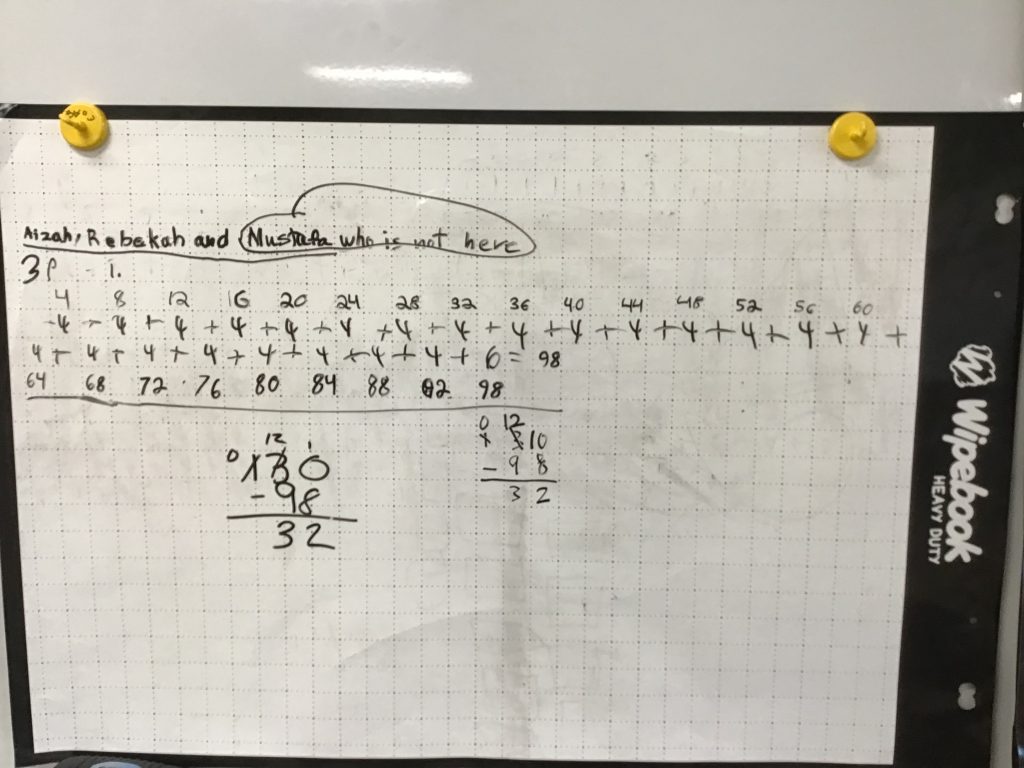 Aizah, Rebekah and Mustafa who is not here
3P 1.
4 8 12 16 20 24 28 32 36 40 44 48 52 56 60
4 + 4 + 4 + 4 + 4 + 4 + 4 + 4 + 4 + 4 + 4 + 4 + 4 + 4 + 4 +
4 + 4 + 4 + 4 + 4 + 4 + 4 + 4 + 6 = 98
64 68 72 76 80 84 88 92 98
12 1
0 130
- 98
32
0 12
1 3 10
- 9 8
3 2
Wipebook
HEAVY DUTY